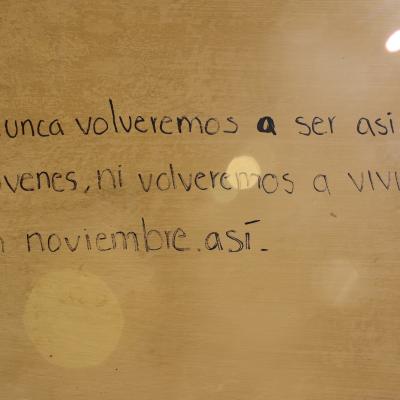 unca volveremos a ser asi
ovenes, ni volveremos a vivi
n noviembre. así.